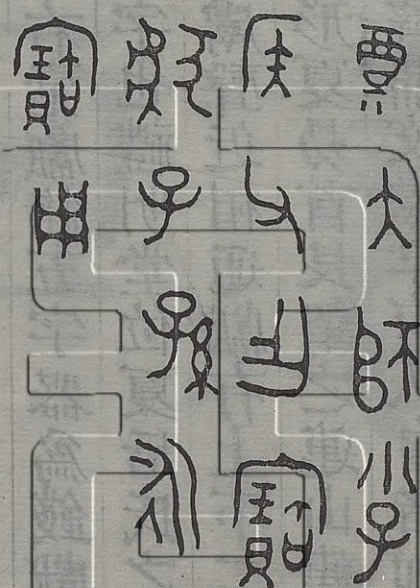 奠大師小子
侯父乍寶
獻子孫永
寶用